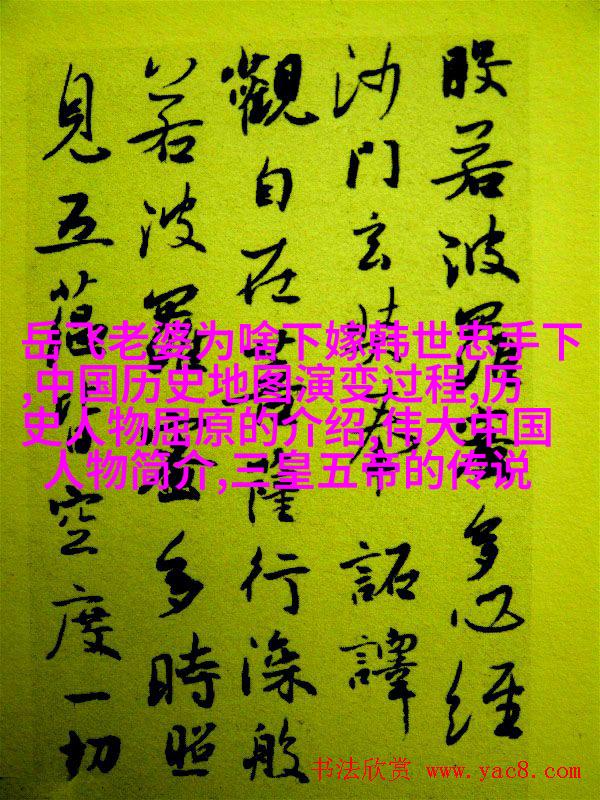 般若波羅蜜多心經
沙門玄奘奉 詔譯
觀自在菩薩行深般
若波羅蜜多時照
見五蘊皆空度一切
岳飞老婆为啥下嫁韩世忠手下
,中国历史地图演变过程,历
史人物屈原的介绍,伟大中国
人物简介,三皇五帝的传说
书法欣赏 www.yac8.com